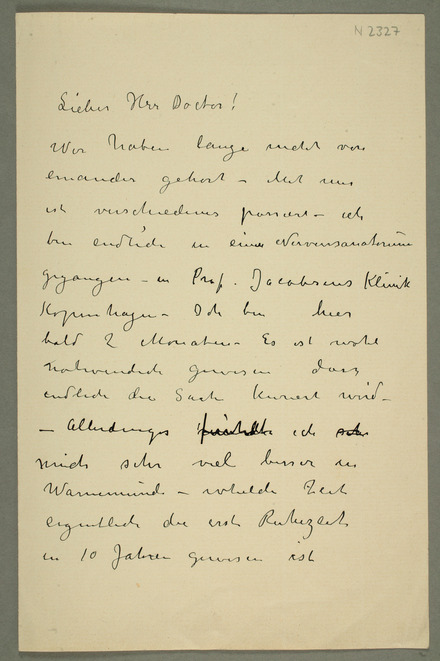 N 2327
Lieber Herr Doctor!
Wir haben lange nicht von
einander gehört – Mit mir
ist verschiedenes passiert – ich
bin endlich in eine Nervensanatorium
gegangen – in Prof. Jacobsens Klinik
Kopenhagen – Ich bin hier
bald 2 Monaten – Es ist wohl
nothwendich gewesen dass
endlich die Sache kuriert wird –
– Allerdings ich
mich sehr viel besser in
Warnemünde – welche Zeit
eigentlich die erste Ruhezeit
in 10 Jahren gewesen ist